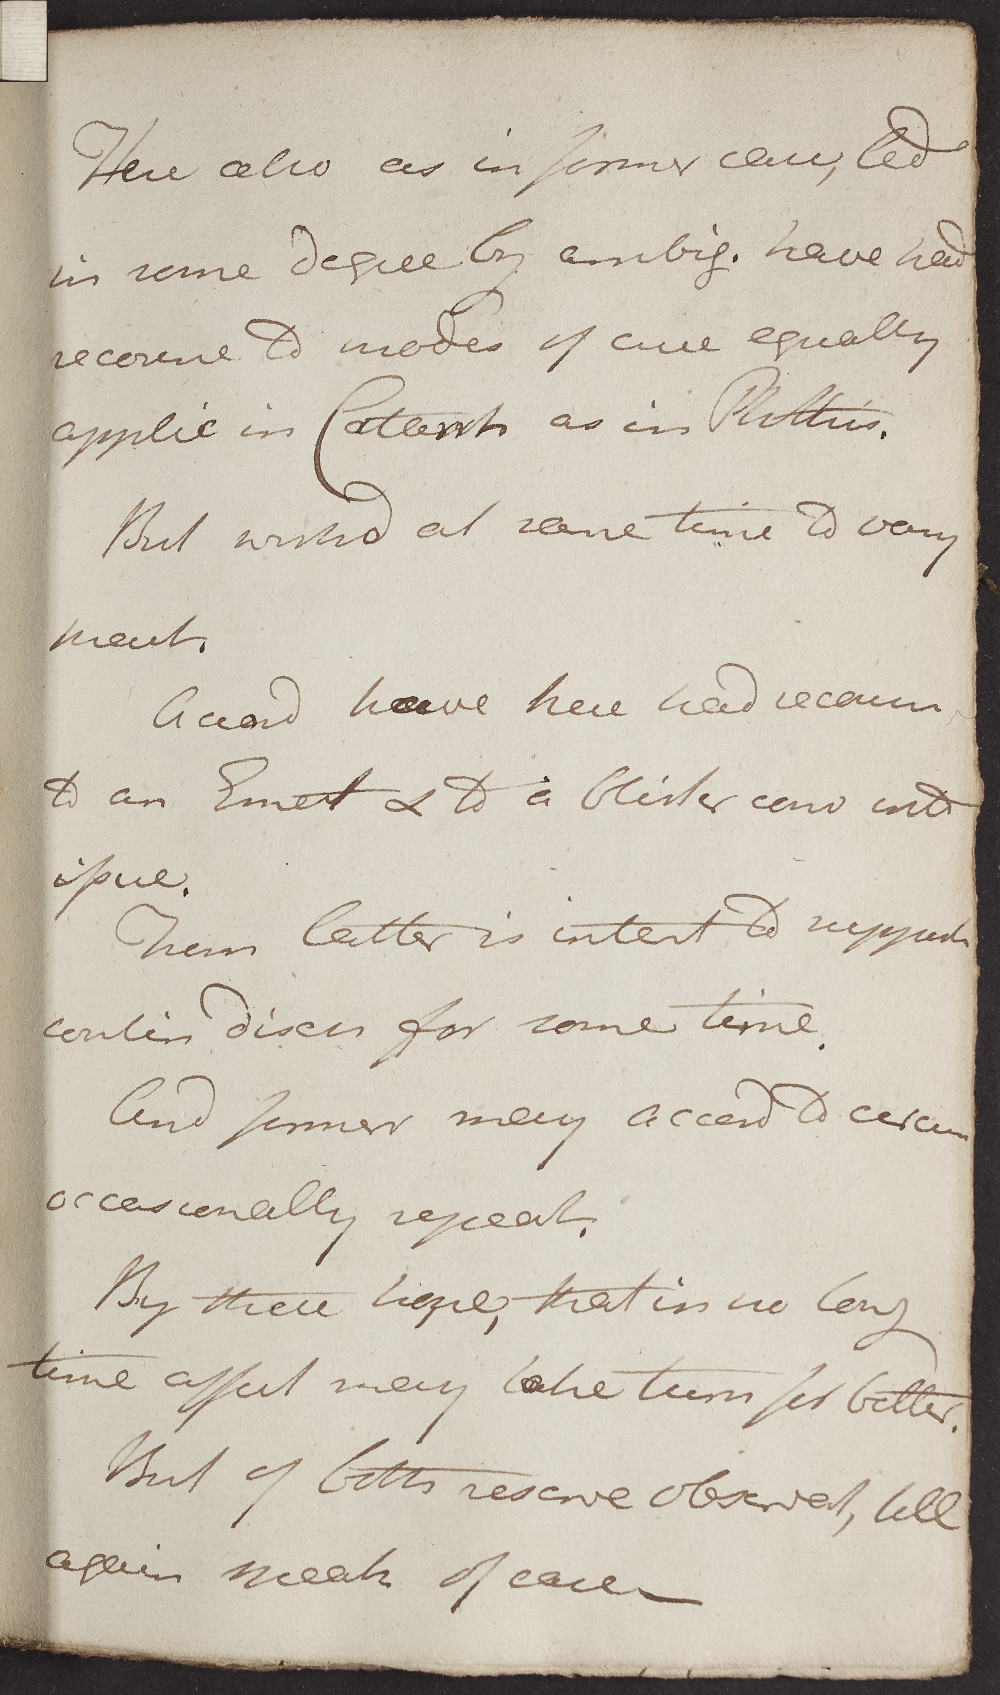 Here also as in former case, led
in some degree by ambig. have had
recourse to modes of cure equally
applic in Catarrh as in Phthis.
But wishd at same time to vary
ment.
Accord have here had recour
to an Emet & to a blister conv into
issue.
From latter is intent to support
contin disch for some time.
And former may accord to circum
occasionally repeat.
By these hope, that in no long
time affect may take turn for better.
But of both reserve observat, till
again speak of case